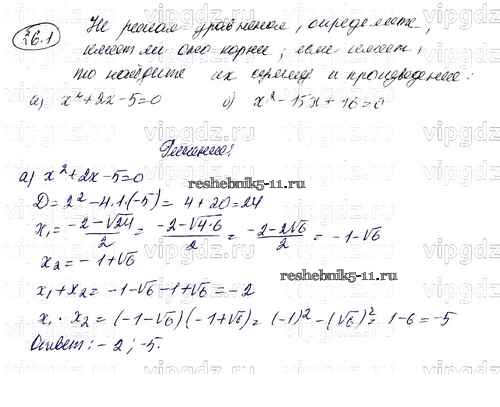 36.1
Не решая уравнения, определите,
имеет ли оно корни; если имеет,
то найдите их сумму и произведение:
а) x²+2x-5=0 б) x²-15x+16=0
Решение:
а) x²+2x-5=0
reshebnik5-11.ru
D=2²-4·1·(-5)=4+20=24
x₁=(-2-√24)/2=(-2-√4·6)/2=(-2-2√6)/2=-1-√6
x₂=-1+√6
reshebnik5-11.ru
x₁+x₂=-1-√6-1+√6=-2
x₁·x₂=(-1-√6)(-1+√6)=(-1)²-(√6)²=1-6=-5
Ответ: -2; -5.
vipgdz.ru